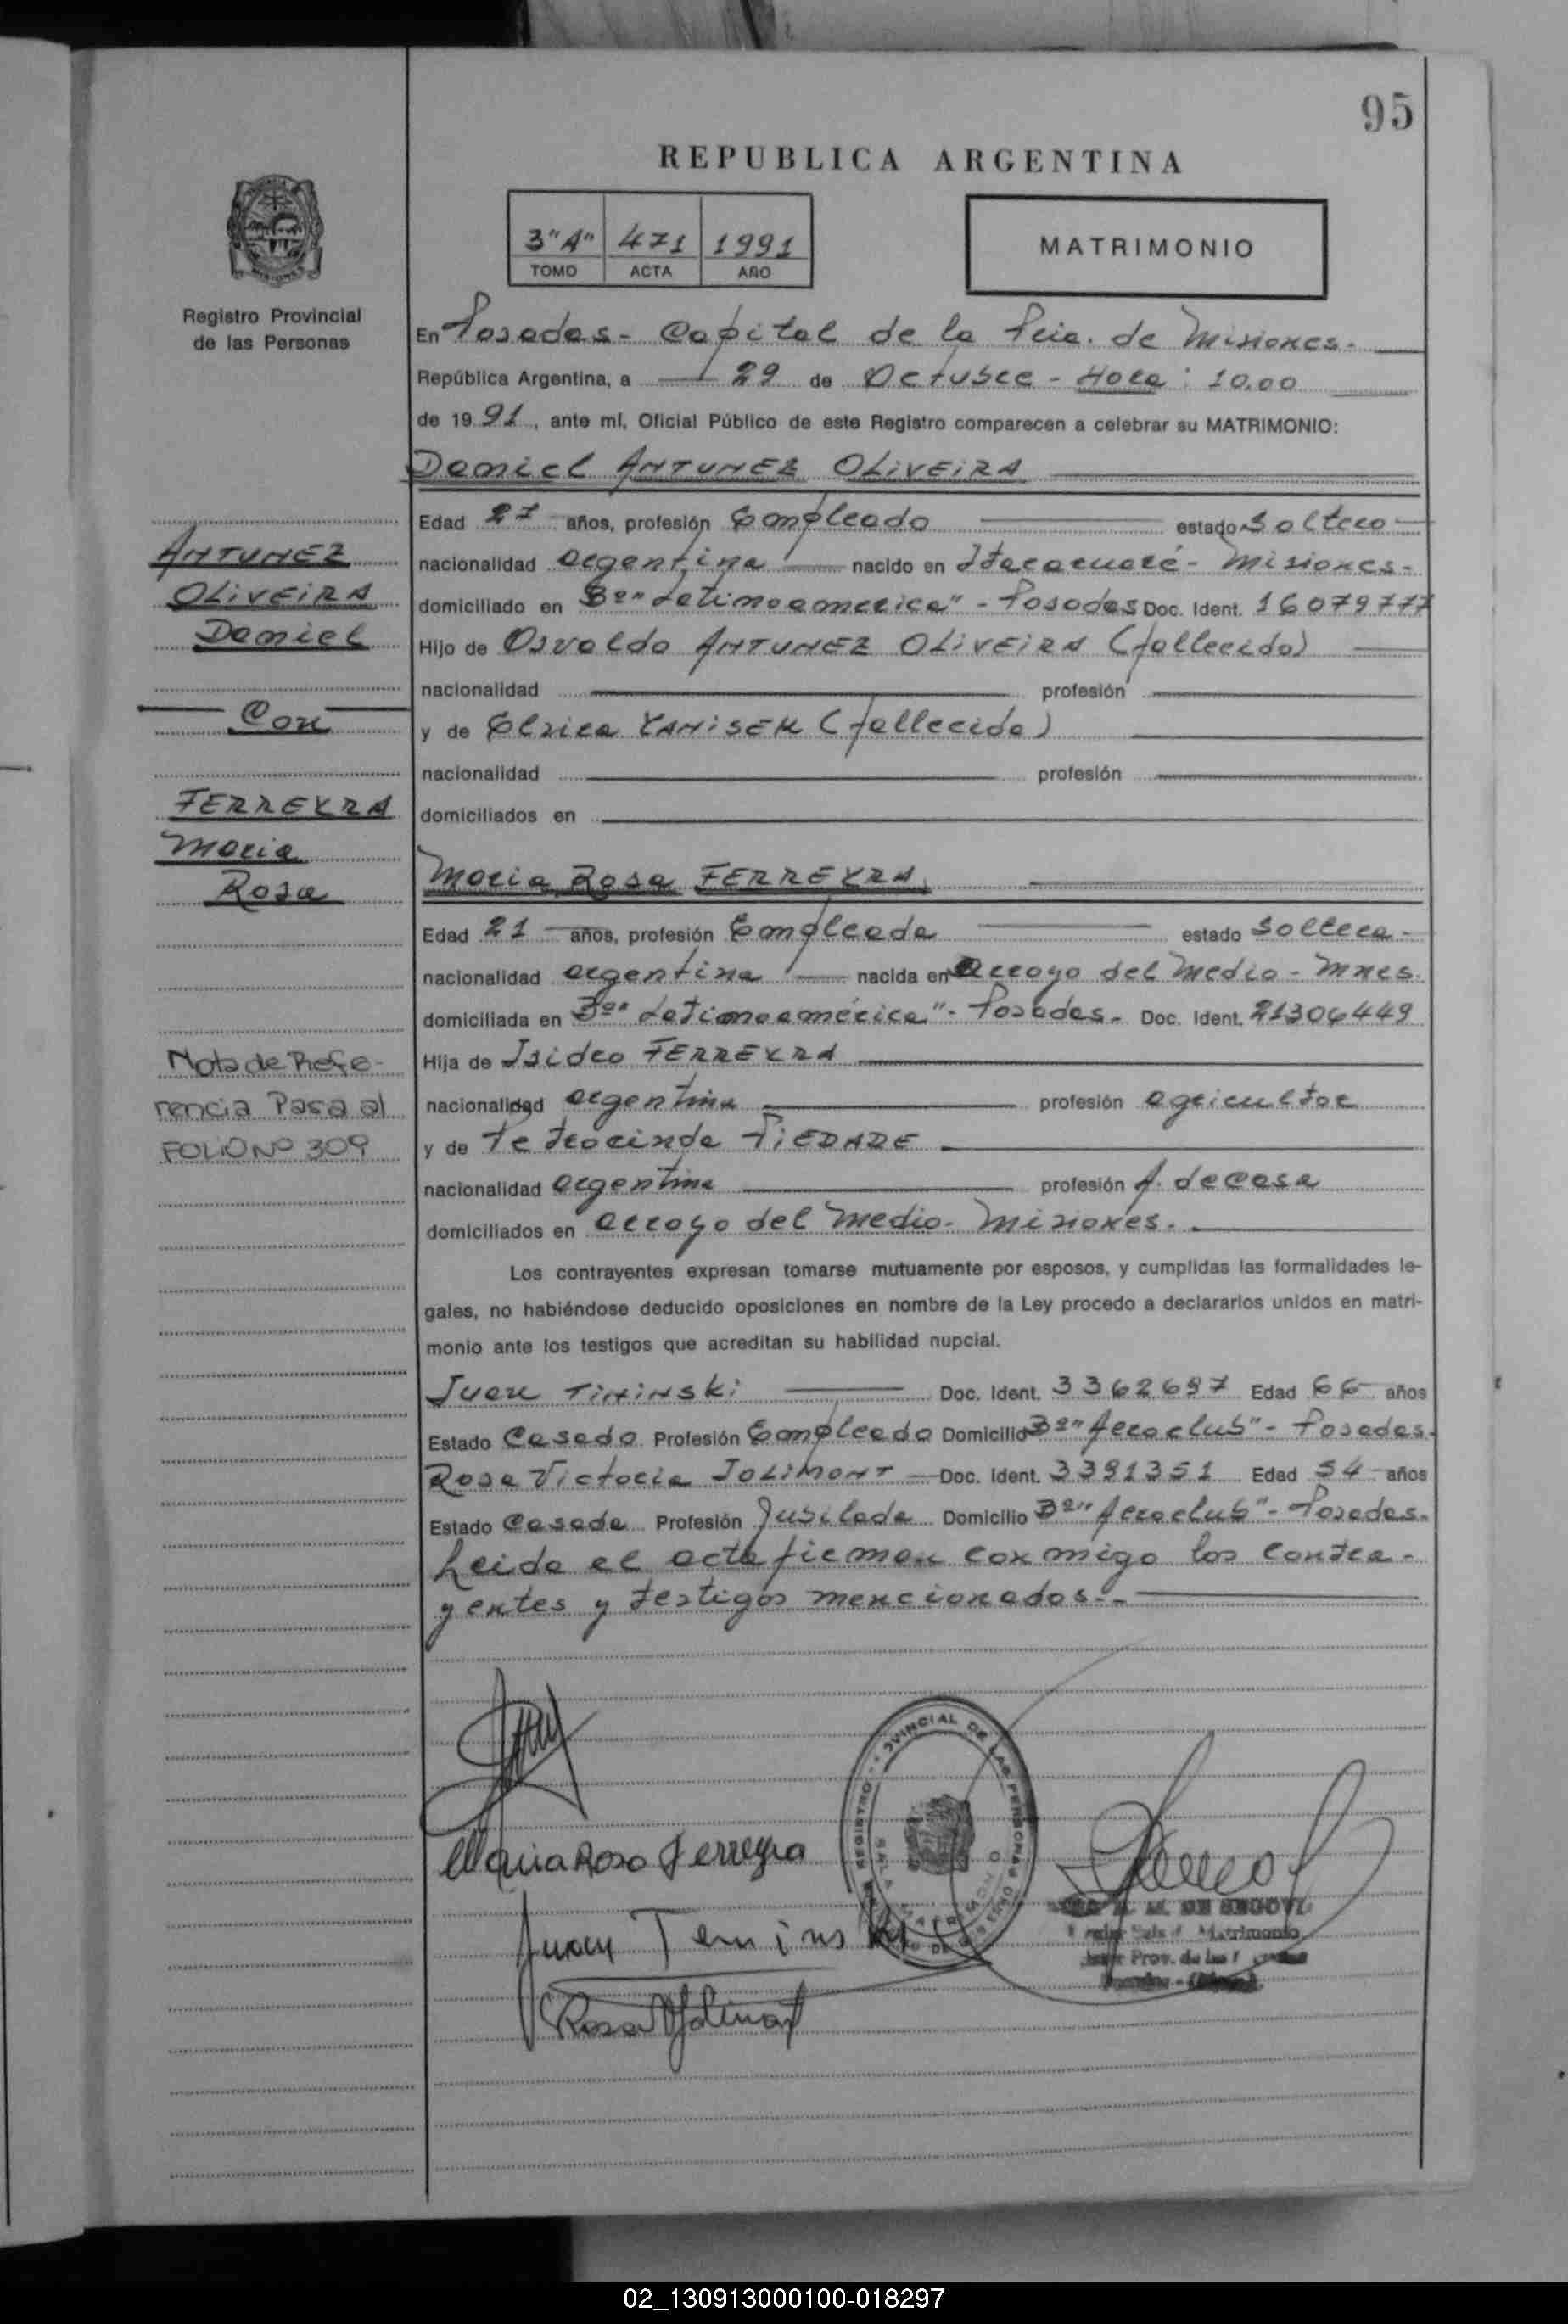 95
REPUBLICA ARGENTINA
3"A" 471 1991
TOMO ACTA AÑO
MATRIMONIO
Registro Provincial
de las Personas
En Posadas - Capital de la Pcia. de Misiones.-
República Argentina, a 29 de Octubre - Hora: 10.00
de 1991, ante mí, Oficial Público de este Registro comparecen a celebrar su MATRIMONIO:
Daniel ANTUNEZ OLIVEIRA
Edad 27 años, profesión Empleado estado soltero
nacionalidad argentina nacido en Itacaruaré - Misiones.-
domiciliado en Bº "Latinoamerica" - Posadas Doc. Ident. 16079777
Hijo de Osvaldo ANTUNEZ OLIVEIRA (fallecido)
nacionalidad profesión
y de Elzira YANISEK (fallecida)
nacionalidad profesión
domiciliados en
Maria Rosa FERREYRA
Edad 21 años, profesión Empleada estado soltera -
nacionalidad argentina nacida en Arroyo del Medio - Mnes.
domiciliada en Bº "Latinoamérica" - Posadas - Doc. Ident. 21306449
Hija de Isidro FERREYRA
nacionalidad argentina profesión agricultor
y de PIEDADE
nacionalidad argentina profesión A. de casa
domiciliados en Arroyo del Medio - Misiones.-
Los contrayentes expresan tomarse mutuamente por esposos, y cumplidas las formalidades le-
gales, no habiéndose deducido oposiciones en nombre de la Ley procedo a declararlos unidos en matri-
monio ante los testigos que acreditan su habilidad nupcial.
Juan TININSKI Doc. Ident. 3362697 Edad 66 años
Estado Casado Profesión Empleado Domicilio Bº "Aeroclub" - Posadas.
Rosa Victoria JOLIMONT Doc. Ident. 3391351 Edad 54 años
Estado Casada Profesión Jubilada Domicilio Bº "Aeroclub" - Posadas.
Leida el acta firman conmigo los contra-
yentes y testigos mencionados.-
ANTUNEZ
OLIVEIRA
Daniel
Con
FERREYRA
Maria
Rosa
Nota de Refe-
rencia Pasa al
FOLIO Nº 309
Maria Rosa Ferreyra
Juan Teminski
REGISTRO PROVINCIAL DE LAS PERSONAS
M. DE SEGOVI
Matrimonio
Prov. de las
02_130913000100-018297